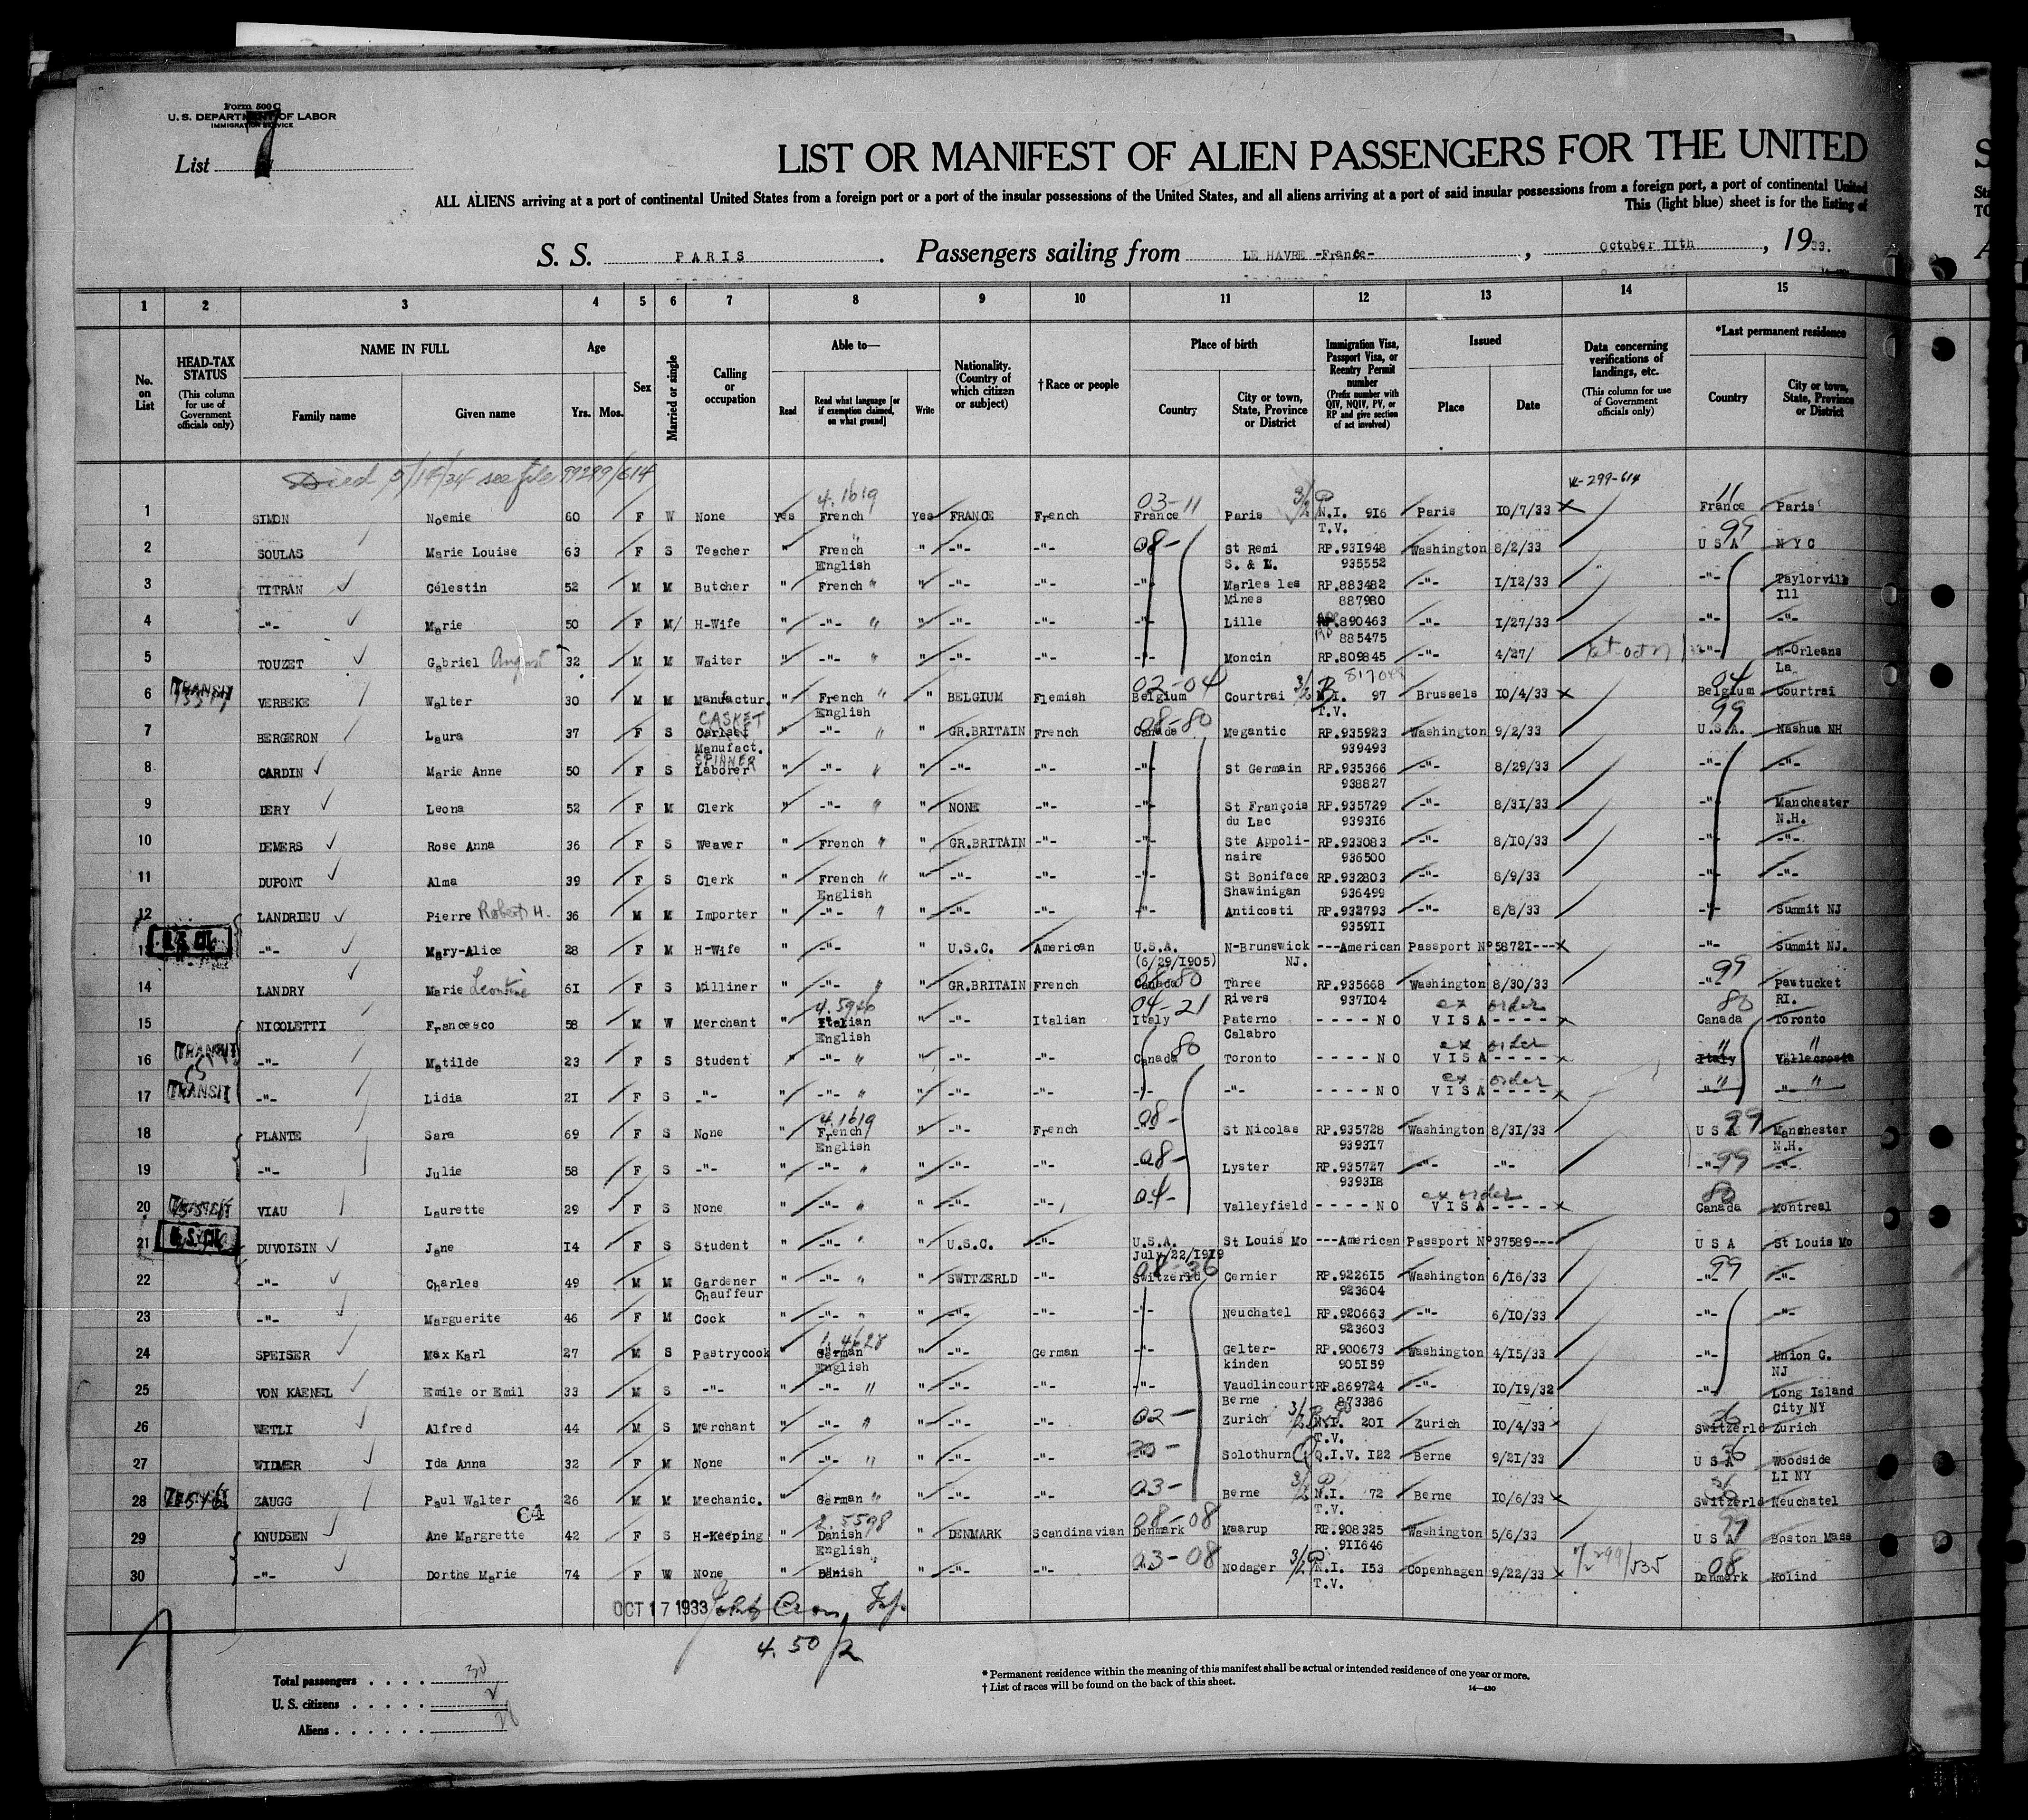 Form 500 C
U. S. DEPARTMENT OF LABOR
IMMIGRATION SERVICE
List 7
LIST OR MANIFEST OF ALIEN PASSENGERS FOR THE UNITED
ALL ALIENS arriving at a port of continental United States from a foreign port or a port of the insular possessions of the United States, and all aliens arriving at a port of said insular possessions from a foreign port, a port of continental United
This (light blue) sheet is for the listing of
S. S. PARIS. Passengers sailing from LE HAVRE -France-, October 11th, 1933.
1 2 3 4 5 6 7 8 9 10 11 12 13 14 15
No. on List
HEAD-TAX STATUS (This column for use of Government officials only)
NAME IN FULL Family name Given name
Age Yrs. Mos.
Sex
Married or single
Calling or occupation
Able to— Read Read what language [or if exemption claimed, on what ground] Write
Nationality. (Country of which citizen or subject)
†Race or people
Place of birth Country City or town, State, Province or District
Immigration Visa, Passport Visa, or Reentry Permit number (Prefix number with QIV, NQIV, PV, or RP and give section of act involved)
Issued Place Date
Data concerning verifications of landings, etc. (This column for use of Government officials only)
*Last permanent residence Country City or town, State, Province or District
Died 5/14/34 see file 99299/614
4.1619 03-11 11
1 SIMON Noemie 60 F W None Yes French Yes FRANCE French France Paris N.I. 916 Paris 10/7/33 X France Paris
T.V.
08- 99
2 SOULAS Marie Louise 63 F S Teacher " French " -"- -"- St Remi RP.931948 Washington 8/2/33 U S A N Y C
English S. & L. 935552
3 TITRAN Célestin 52 M M Butcher " French " " -"- -"- -"- Marles les RP.883482 -"- 1/12/33 -"- Taylorvill
Mines 887980 Ill
4 -"- Marie 50 F M H-Wife " -"- " " -"- -"- -"- Lille RP.890463 -"- 1/27/33 -"- -"-
885475
5 TOUZET Gabriel August 32 M M Waiter " -"- " " -"- -"- -"- Moncin RP.809845 -"- 4/27/ -"- N-Orleans
La
TRANSIT 02-04 04
6 VERBEKE Walter 30 M M Manufactur. " French " " BELGIUM Flemish Belgium Courtrai N.I. 97 Brussels 10/4/33 X Belgium Courtrai
English T.V.
CASKET 08-80 99
7 BERGERON Laura 37 F S " -"- " GR.BRITAIN French Canada Megantic RP.935923 Washington 9/2/33 U.S.A. Nashua NH
Manufact. 939493
SPINNER
8 CARDIN Marie Anne 50 F S Laborer " -"- " " -"- -"- -"- St Germain RP.935366 -"- 8/29/33 -"- -"-
938827
9 DERY Leona 52 F M Clerk " -"- " " NONE -"- -"- St François RP.935729 -"- 8/31/33 -"- Manchester
du Lac 939316 N.H.
10 DEMERS Rose Anna 36 F S Weaver " French " " GR.BRITAIN -"- -"- Ste Appoli- RP.933083 -"- 8/10/33 -"- -"-
naire 936500
11 DUPONT Alma 39 F S Clerk " French " " -"- -"- -"- St Boniface RP.932803 -"- 8/9/33 -"- -"-
English Shawinigan 936499
12 LANDRIEU Pierre Robert H. 36 M M Importer " -"- " " -"- -"- -"- Anticosti RP.932793 -"- 8/8/33 -"- Summit NJ
935911
13 -"- Mary-Alice 28 F M H-Wife " -"- " U.S.C. American U.S.A. N-Brunswick ---American Passport Nº58721---X -"- Summit NJ.
(6/29/1905) NJ.
80 99
14 LANDRY Marie Leontine 61 F S Milliner " -"- " " GR.BRITAIN French Canada Three RP.935668 Washington 8/30/33 -"- Pawtucket
Rivers 937104 RI.
4.5946 04-21 ex order 80
15 NICOLETTI Francesco 58 M W Merchant " Italian " -"- Italian Italy Paterno ----NO VISA---- X Canada Toronto
English Calabro
TRANSIT 80 ex order
16 -"- Matilde 23 F S Student " -"- " " -"- -"- Canada Toronto ----NO VISA---- X Italy Vallecrosia
TRANSIT ex order
17 -"- Lidia 21 F S -"- " -"- " " -"- -"- -"- -"- ----NO VISA---- X " "
4.1619 08- 99
18 PLANTE Sara 69 F S None " French " -"- French -"- St Nicolas RP.935728 Washington 8/31/33 U S A Manchester
English 939317 N.H.
19 -"- Julie 58 F S -"- " -"- " " -"- -"- 08- Lyster RP.935727 -"- -"- -"- 99 -"-
939318
04- ex order 80
20 VIAU Laurette 29 F S None " -"- " " -"- -"- Valleyfield ----NO VISA---- X Canada Montreal
21 DUVOISIN Jane 14 F S Student " -"- " " U.S.C. -"- U.S.A. St Louis Mo ---American Passport Nº37589--- U S A St Louis Mo
July/22/1919
08-36 99
22 -"- Charles 49 M M Gardener " -"- " " SWITZERLD -"- Switzerld Cernier RP.922615 Washington 6/16/33 -"- -"-
Chauffeur 923604
23 -"- Marguerite 46 F M Cook " -"- " " -"- -"- -"- Neuchatel RP.920663 -"- 6/10/33 -"- -"-
923603
1.4628
24 SPEISER Max Karl 27 M S Pastrycook " German " -"- German -"- Gelter- RP.900673 Washington 4/15/33 -"- Union C.
English kinden 905159 NJ
25 VON KAENEL Emile or Emil 33 M S -"- " -"- " " -"- -"- -"- Vaudlincourt RP.869724 -"- 10/19/32 -"- Long Island
Berne 873386 City NY
02- 36
26 WETLI Alfred 44 M S Merchant " -"- " " -"- -"- Zurich N.I. 201 Zurich 10/4/33 Switzerld Zurich
T.V.
27 WIDMER Ida Anna 32 F M None " -"- " " -"- -"- Solothurn Q.I.V. 122 Berne 9/21/33 U S A Woodside
LI NY
03- 36
28 ZAUGG Paul Walter 26 M M Mechanic. " German " " -"- -"- Berne N.I. 72 Berne 10/6/33 X Switzerld Neuchatel
T.V.
2.5598 08-08 99
29 KNUDSEN Ane Margrette 42 F S H-Keeping " Danish " DENMARK Scandinavian Denmark Maarup RP.908325 Washington 5/6/33 U S A Boston Mass
English 911646
03-08 08
30 -"- Dorthe Marie 74 F W None " Danish " -"- -"- Nodager N.I. 153 Copenhagen 9/22/33 X Denmark Kolind
T.V.
OCT 17 1933
4.50
Total passengers . . . . 30
U. S. citizens . . . . . 2
Aliens . . . . . .
* Permanent residence within the meaning of this manifest shall be actual or intended residence of one year or more.
† List of races will be found on the back of this sheet.
14—430